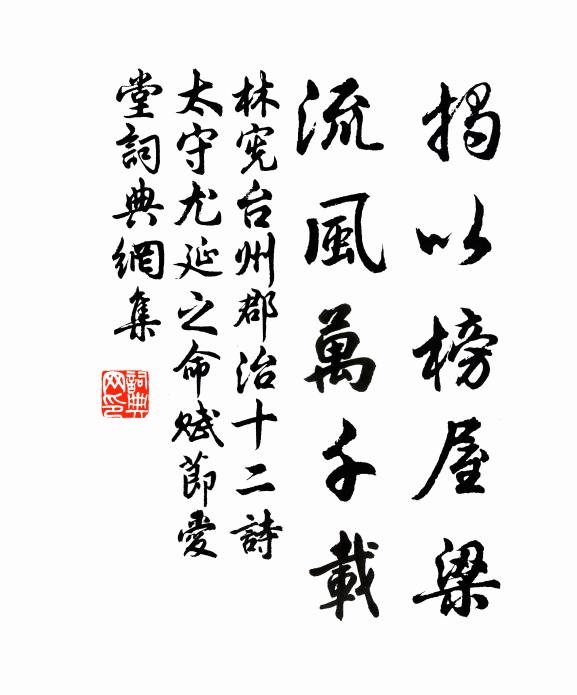 揭以榜屋梁
流風萬千載
林宪台州郡治十二詩
太守尤延之命赋節愛
堂詞典網集
詞典
网印